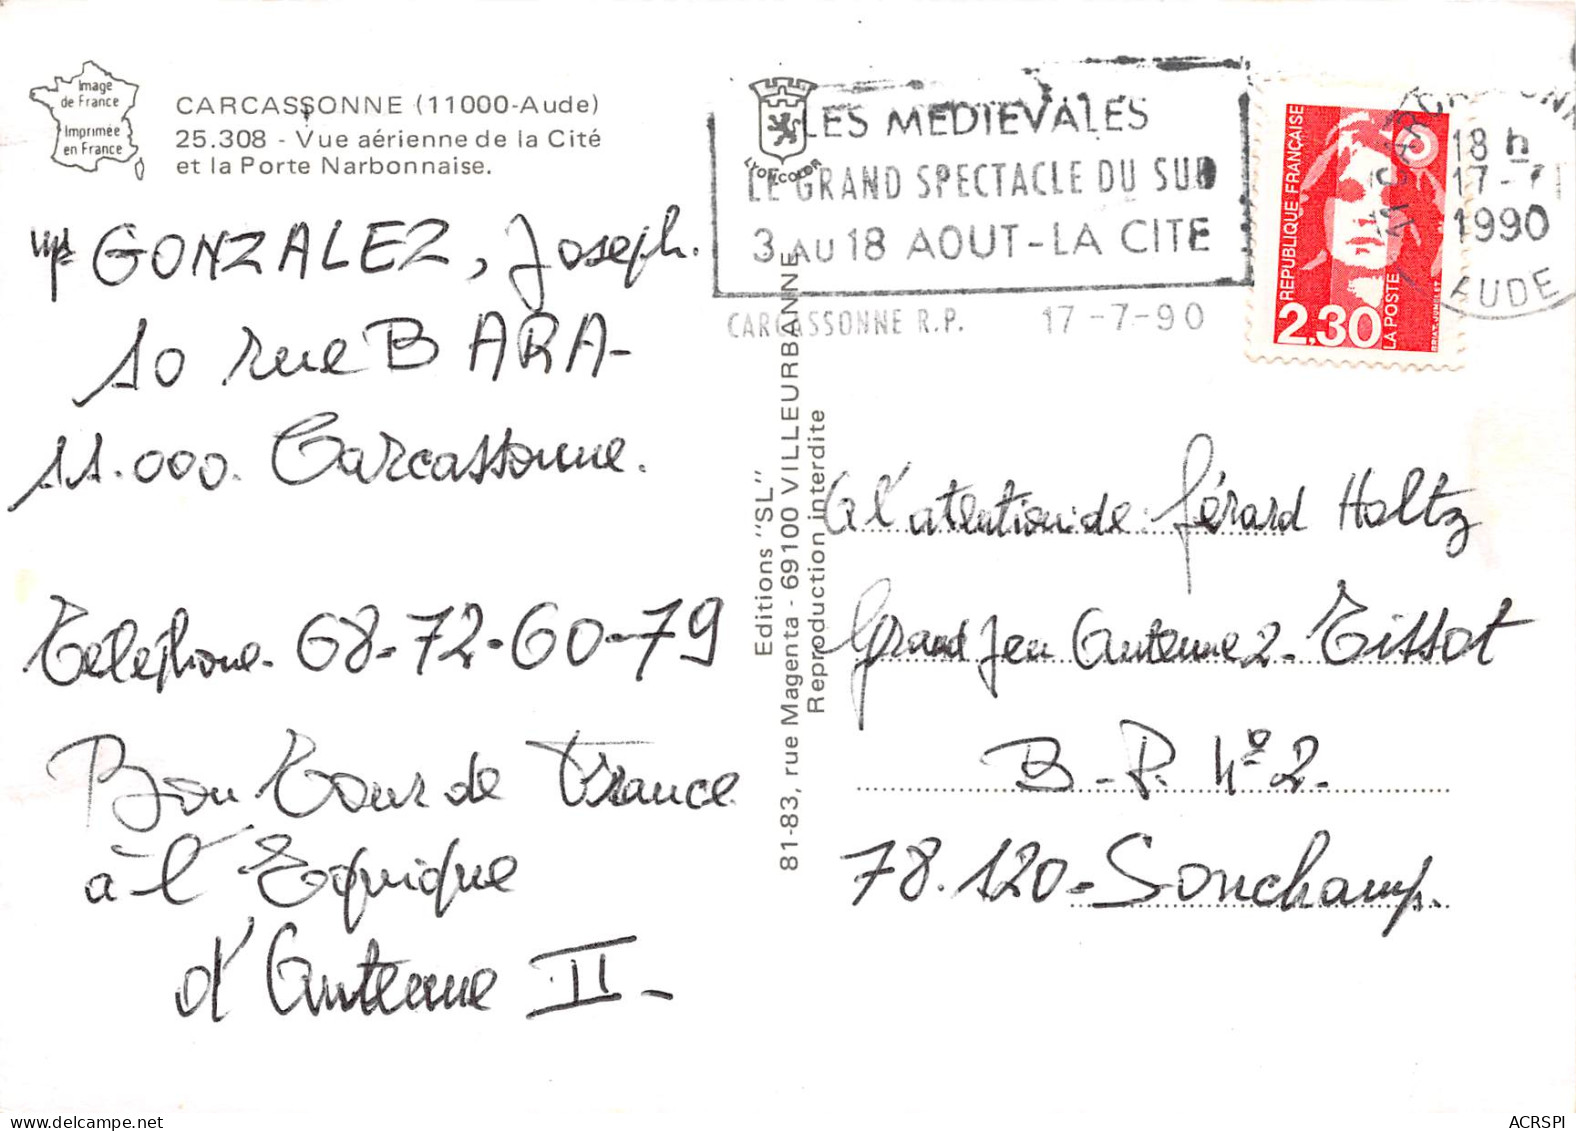 Image
de France
Imprimée
en France
CARCASSONNE (11000-Aude)
25.308 - Vue aérienne de la Cité
et la Porte Narbonnaise.
GONZALEZ, Joseph.
10 rue BARA-
11.000. Carcassonne.
Téléphone- 68-72-60-79
Bon Tour de France
à l'Equique
d'Antenne II-
Editions "SL"
81-83, rue Magenta - 69100 VILLEURBANNE
Reproduction interdite
LYON COLOR
LES MEDIEVALES
LE GRAND SPECTACLE DU SUD
3 AU 18 AOUT - LA CITE
CARCASSONNE R.P. 17-7-90
REPUBLIQUE FRANÇAISE
2,30
LA POSTE
BRIAT. JUMELET
CARCASSONNE
18 h
17-7
1990
AUDE
A l'atention de: Gérard Holtz
Grand Jeu Antenne 2- Tissot
B-P. N° 2.
78.120- Sonchamp.
ACRSPI